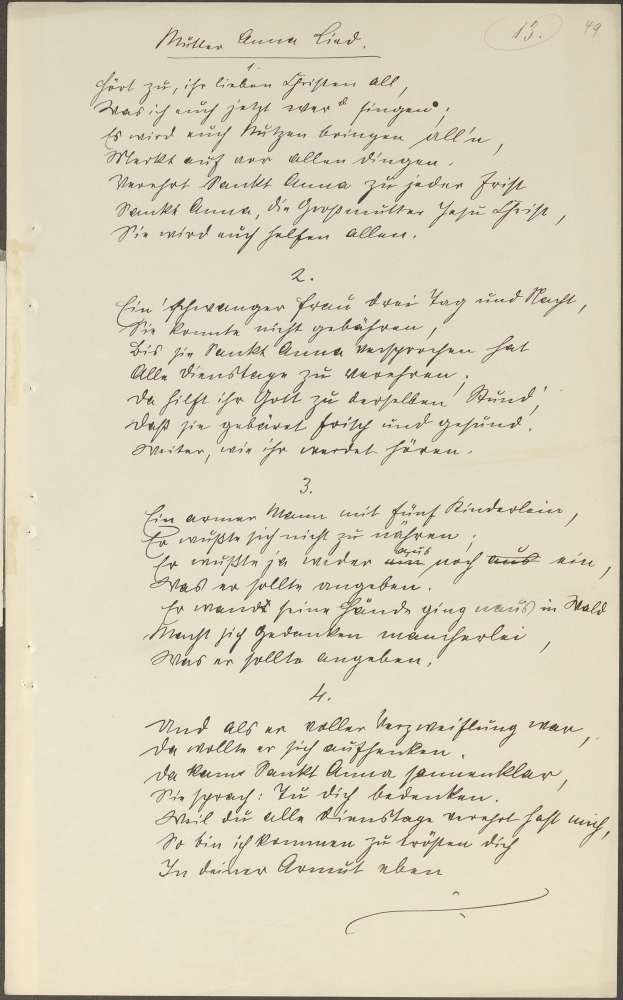 13. 49
Mutter Anna Lied.
1.
Hört zu, ihr lieben Christen all,
Was ich euch jetzt werd singen,
Es wird euch Nutzen bringen all'n,
Merkt auf vor allen Dingen.
Verehrt Sankt Anna zu jeder Frist
Sankt Anna, die Großmutter Jesu Christ,
Sie wird euch helfen allen.
2.
Ein' schwanger Frau drei Tag und Nacht,
Sie konnte nicht gebähren,
Bis sie Sankt Anna versprochen hat
Alle Dienstage zu verehren.
Da hilft ihr Gott zu derselben Stund',
Daß sie gebäret frisch und gesund.
Weiter, wie ihr werdet hören.
3.
Ein armer Mann mit fünf Kinderlein,
Er wußte sich nicht zu nähren;
Er wußte ja weder aus noch aus ein,
Was er sollte angeben.
Er wandt seine Hände ging naus in Wald
Macht sich Gedanken mancherlei,
Was er sollte angeben.
4.
Und als er voller Verzweiflung war,
Da wollte er sich aufhenken.
Da kam Sankt Anna sonnenklar,
Sie sprach: Tu dich bedenken.
Weil du alle Dienstage verehrt hast mich,
So bin ich kommen zu trösten dich
In deiner Armut eben